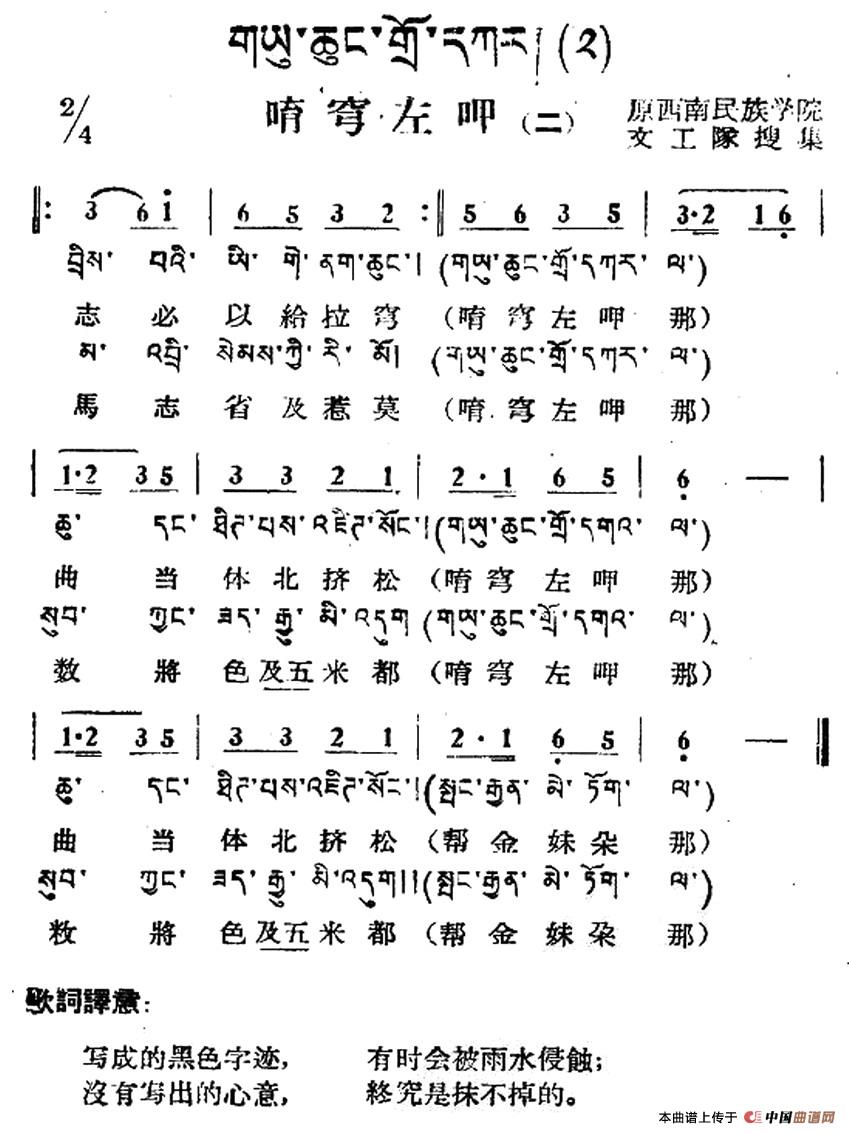 གཡུ་ཆུང་གྲོ་དཀར། (༢)
2/4
唷穹左呷（二）
原西南民族学院
文工隊搜集
‖: 3 6 i | 6 5 3 2 :‖ 5 6 3 5 | 3·2 1 6 |
བྲིས་ པའི་ ཡི་ གེ་ ནག་ཆུང་། (གཡུ་ཆུང་གྲོ་དཀར་ ལ་)
志 必 以 給 拉 穹 （唷 穹 左 呷 那）
མ་ འབྲི་ སེམས་ཀྱི་ རི་ མོ། (གཡུ་ཆུང་གྲོ་དཀར་ ལ་)
馬 志 省 及 惹 莫 （唷 穹 左 呷 那）
| 1·2 3 5 | 3 3 2 1 | 2·1 6 5 | 6 — |
ཆུ་ དང་ ཐིཊ་པས་འཇིཊ་སོང་། (གཡུ་ཆུང་གྲོ་དགའ་ ལ་)
曲 当 体 北 挤 松 （唷 穹 左 呷 那）
སུབ་ ཀྱང་ ཟད་ རྒྱུ་ མི་ འདུག (གཡུ་ཆུང་གྲོ་དགའ་ ལ་)
数 將 色 及五 米 都 （唷 穹 左 呷 那）
| 1·2 3 5 | 3 3 2 1 | 2·1 6 5 | 6 — ‖
ཆུ་ དང་ ཐིཊ་པས་འཇིཊ་སོང་། (སྤང་རྒྱན་ མེ་ ཏོག་ ལ་)
曲 当 体 北 挤 松 （帮 金 妹 朶 那）
སུབ་ ཀྱང་ ཟད་ རྒྱུ་ མི་འདུག།། (སྤང་རྒྱན་ མེ་ ཏོག་ ལ་)
敉 將 色 及五 米 都 （帮 金 妹 朶 那）
歌詞譯意:
写成的黑色字迹， 有时会被雨水侵蝕；
沒有写出的心意， 終究是抹不掉的。
本曲谱上传于 中国曲谱网